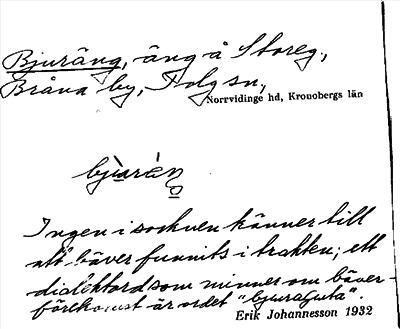 Bjuräng, äng å Storeg.,
Bråna by, Tolg sn,
Norrvidinge hd, Kronobergs län
Ingen i socknen känner till
att bäver funnits i trakten; ett
dialektord som minner om bäver-
förekomst är ordet "bjuraguta".
Erik Johannesson 1932